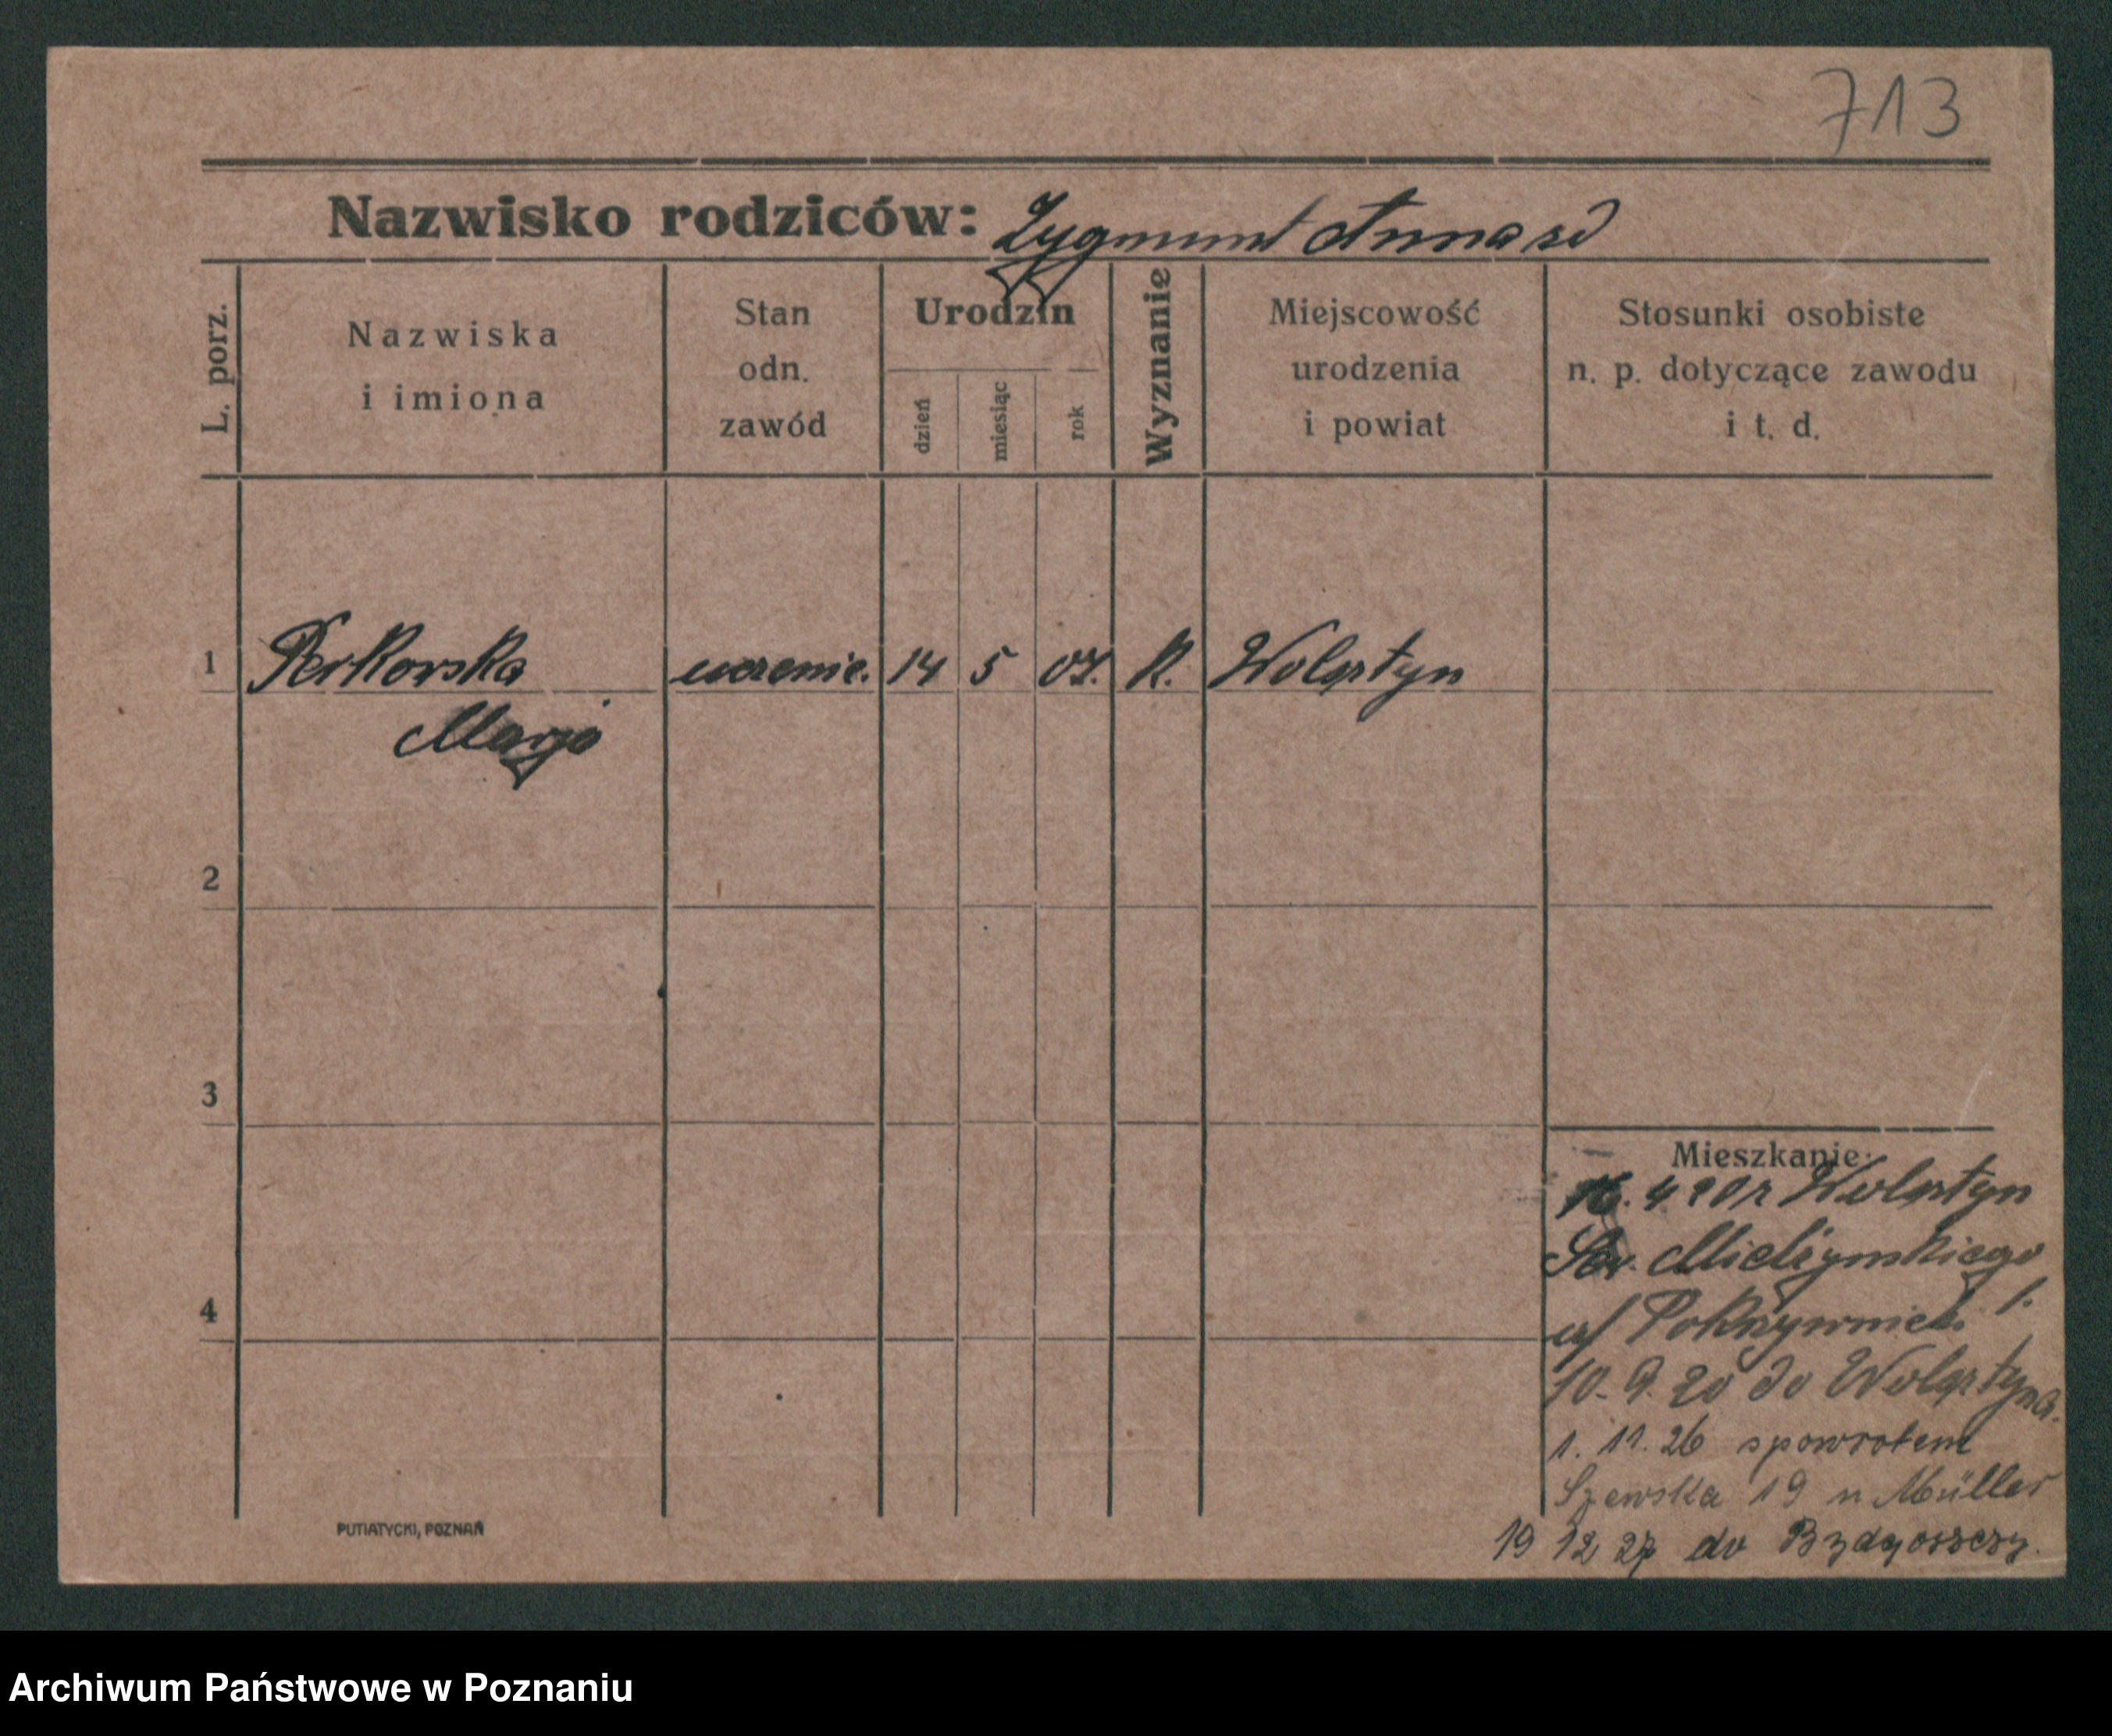 713
Nazwisko rodziców: Zygmunt Anna
L. porz.
Nazwiska
i imiona
Stan
odn.
zawód
Urodzin
dzień
miesiąc
rok
Wyznanie
Miejscowość
urodzenia
i powiat
Stosunki osobiste
n. p. dotyczące zawodu
i t. d.
1 Perkowska uczenic. 14 5 07. K. Wolsztyn
Marja
2
3
4
Mieszkanie:
16. 4 20 r Wolsztyn
Sew. Mielżynskiego
10. 9. 20 do Wolsztyna.
1. 11. 26 spowrotem
Szewska 19 u Müller
19 12 27 do Bydgoszczy.
PUTIATYCKI, POZNAŃ
Archiwum Państwowe w Poznaniu